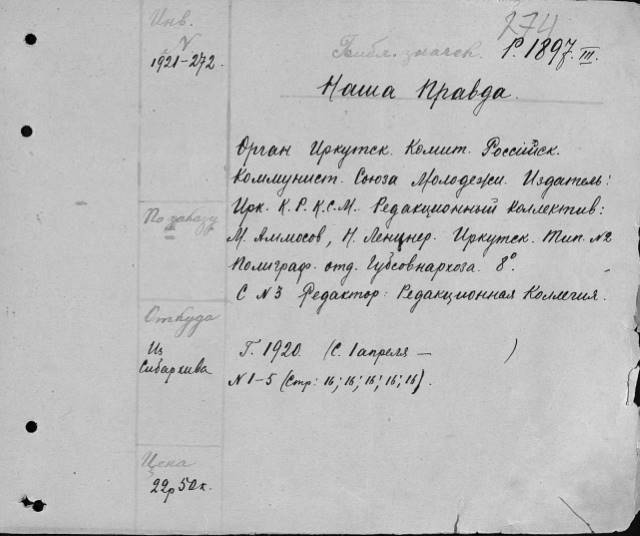 Инв.
N
1921-272.
274
Библ. значок. Р. 1897. III.
Наша Правда.
Орган Иркутск. Комит. Россійск.
Коммунист. Союза Молодежи. Издатель:
Ирк. К. Р. К. С. М. Редакционный Коллектив:
По заказу
М. Аммосов, Н. Ленцнер. Иркутск. Тип. №2
Полиграф. отд. Губсовнархоза. 8°.
С №3 Редактор: Редакционная Коллегия.
Откуда
Из Сибархива
Г. 1920. (С. 1 апреля — )
№1-5 (Стр: 16; 16; 16; 16; 16).
Цена
22р 50к.